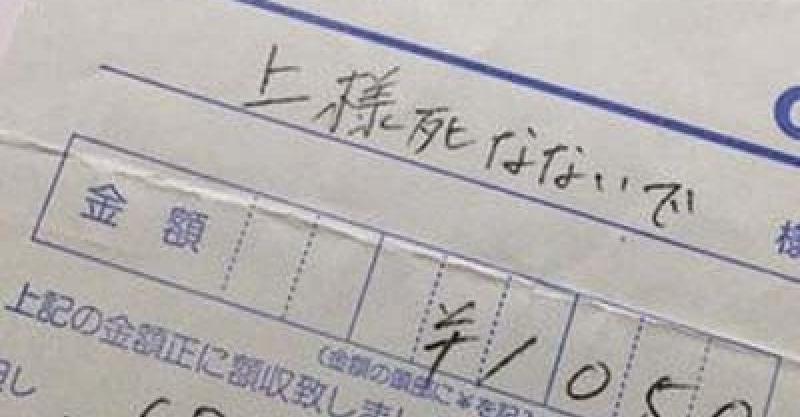 上様死なないで
様
金額 ¥1050
(金額の頭部に¥を記入
上記の金額正に額収致しまし
但し